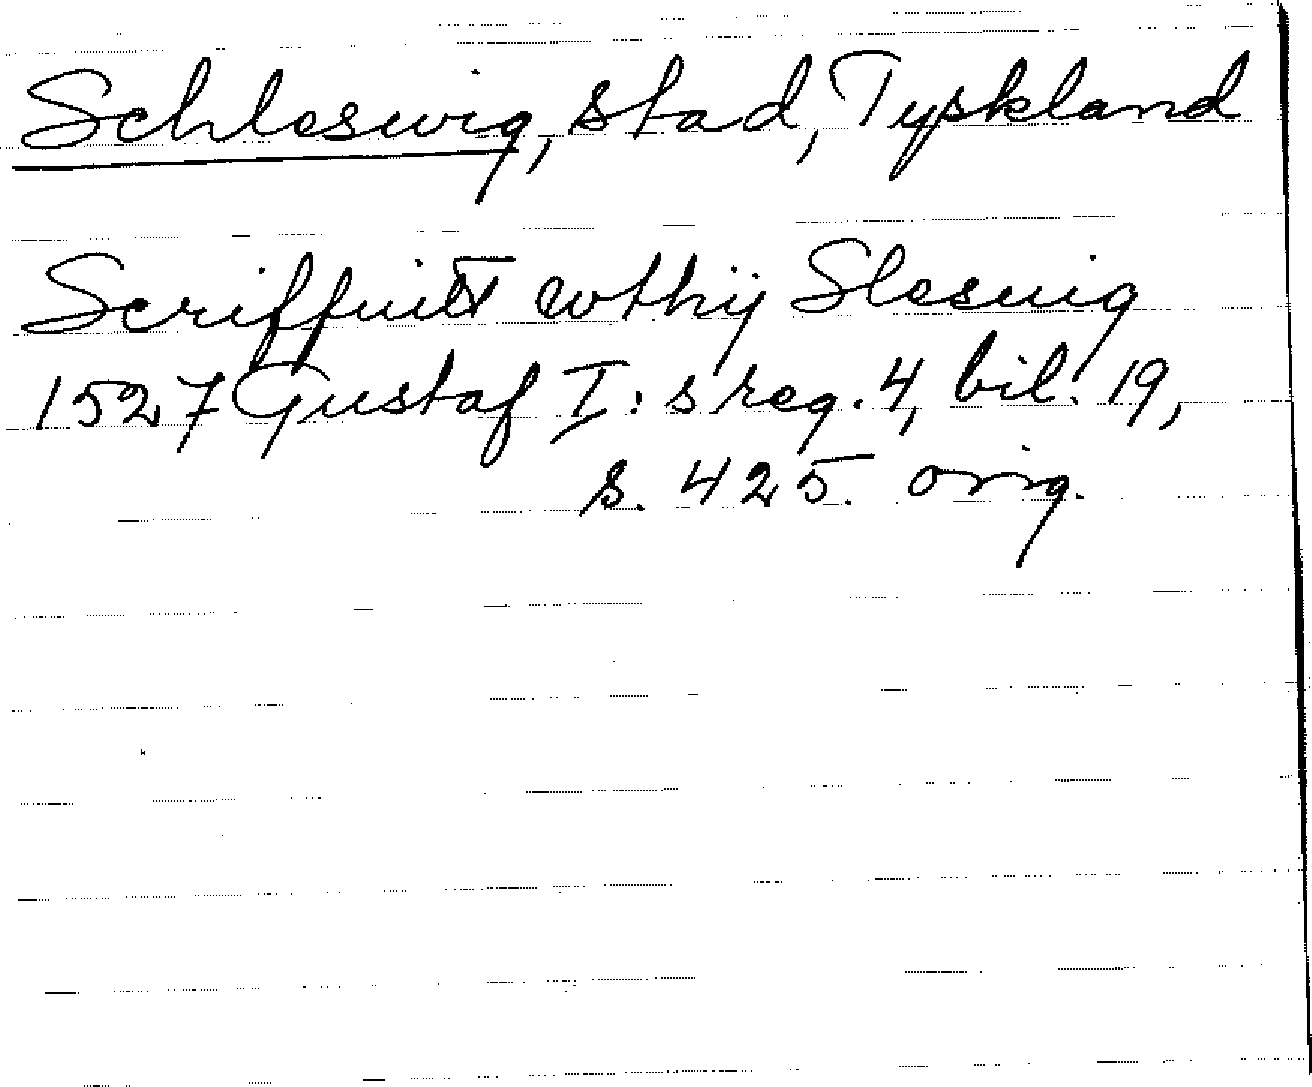 Schleswig, stad, Tyskland
Scriffuitt wthij Slesuig
1527 Gustaf I:s reg. 4, bil. 19,
s. 425. orig.